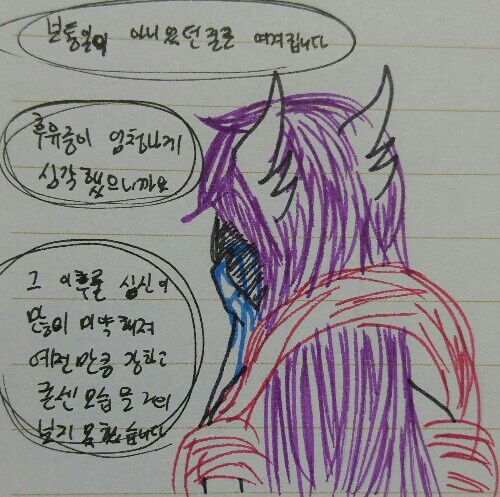 보통일이 아니었던걸로 여겨집니다
후유증이 엄청나게
심각했으니까요
그 이후로 심신이
많이 미약해져
예전만큼 강하고
굳센 모습을 거의
보지 못했습니다